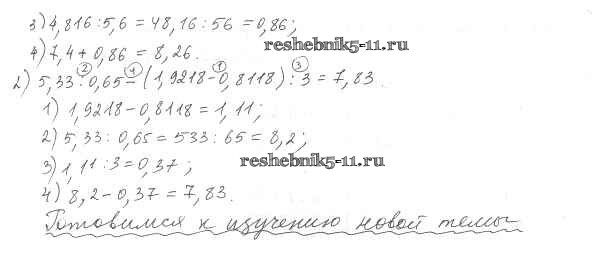 3) 4,816 : 5,6 = 48,16 : 56 = 0,86;
4) 7,4 + 0,86 = 8,26.
reshebnik5-11.ru
2 4 1 3
2) 5,33 : 0,65 - (1,9218 - 0,8118) : 3 = 7,83.
1) 1,9218 - 0,8118 = 1,11;
2) 5,33 : 0,65 = 533 : 65 = 8,2;
3) 1,11 : 3 = 0,37;
reshebnik5-11.ru
4) 8,2 - 0,37 = 7,83.
Готовимся к изучению новой темы